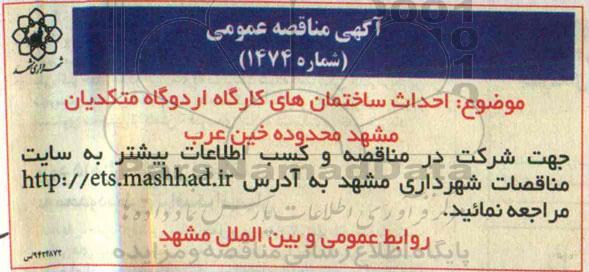 آگهی مناقصه عمومی
(شماره ۱۴۷۴)
شهرداری مشهد
موضوع: احداث ساختمان های کارگاه اردوگاه متکدیان
مشهد محدوده خین عرب
جهت شرکت در مناقصه و کسب اطلاعات بیشتر به سایت
مناقصات شهرداری مشهد به آدرس http://ets.mashhad.ir
مراجعه نمائید.
روابط عمومی و بین الملل مشهد
۹۴۳۴۸۷۳/س
پایگاه اطلاع رسانی مناقصه و مزایده